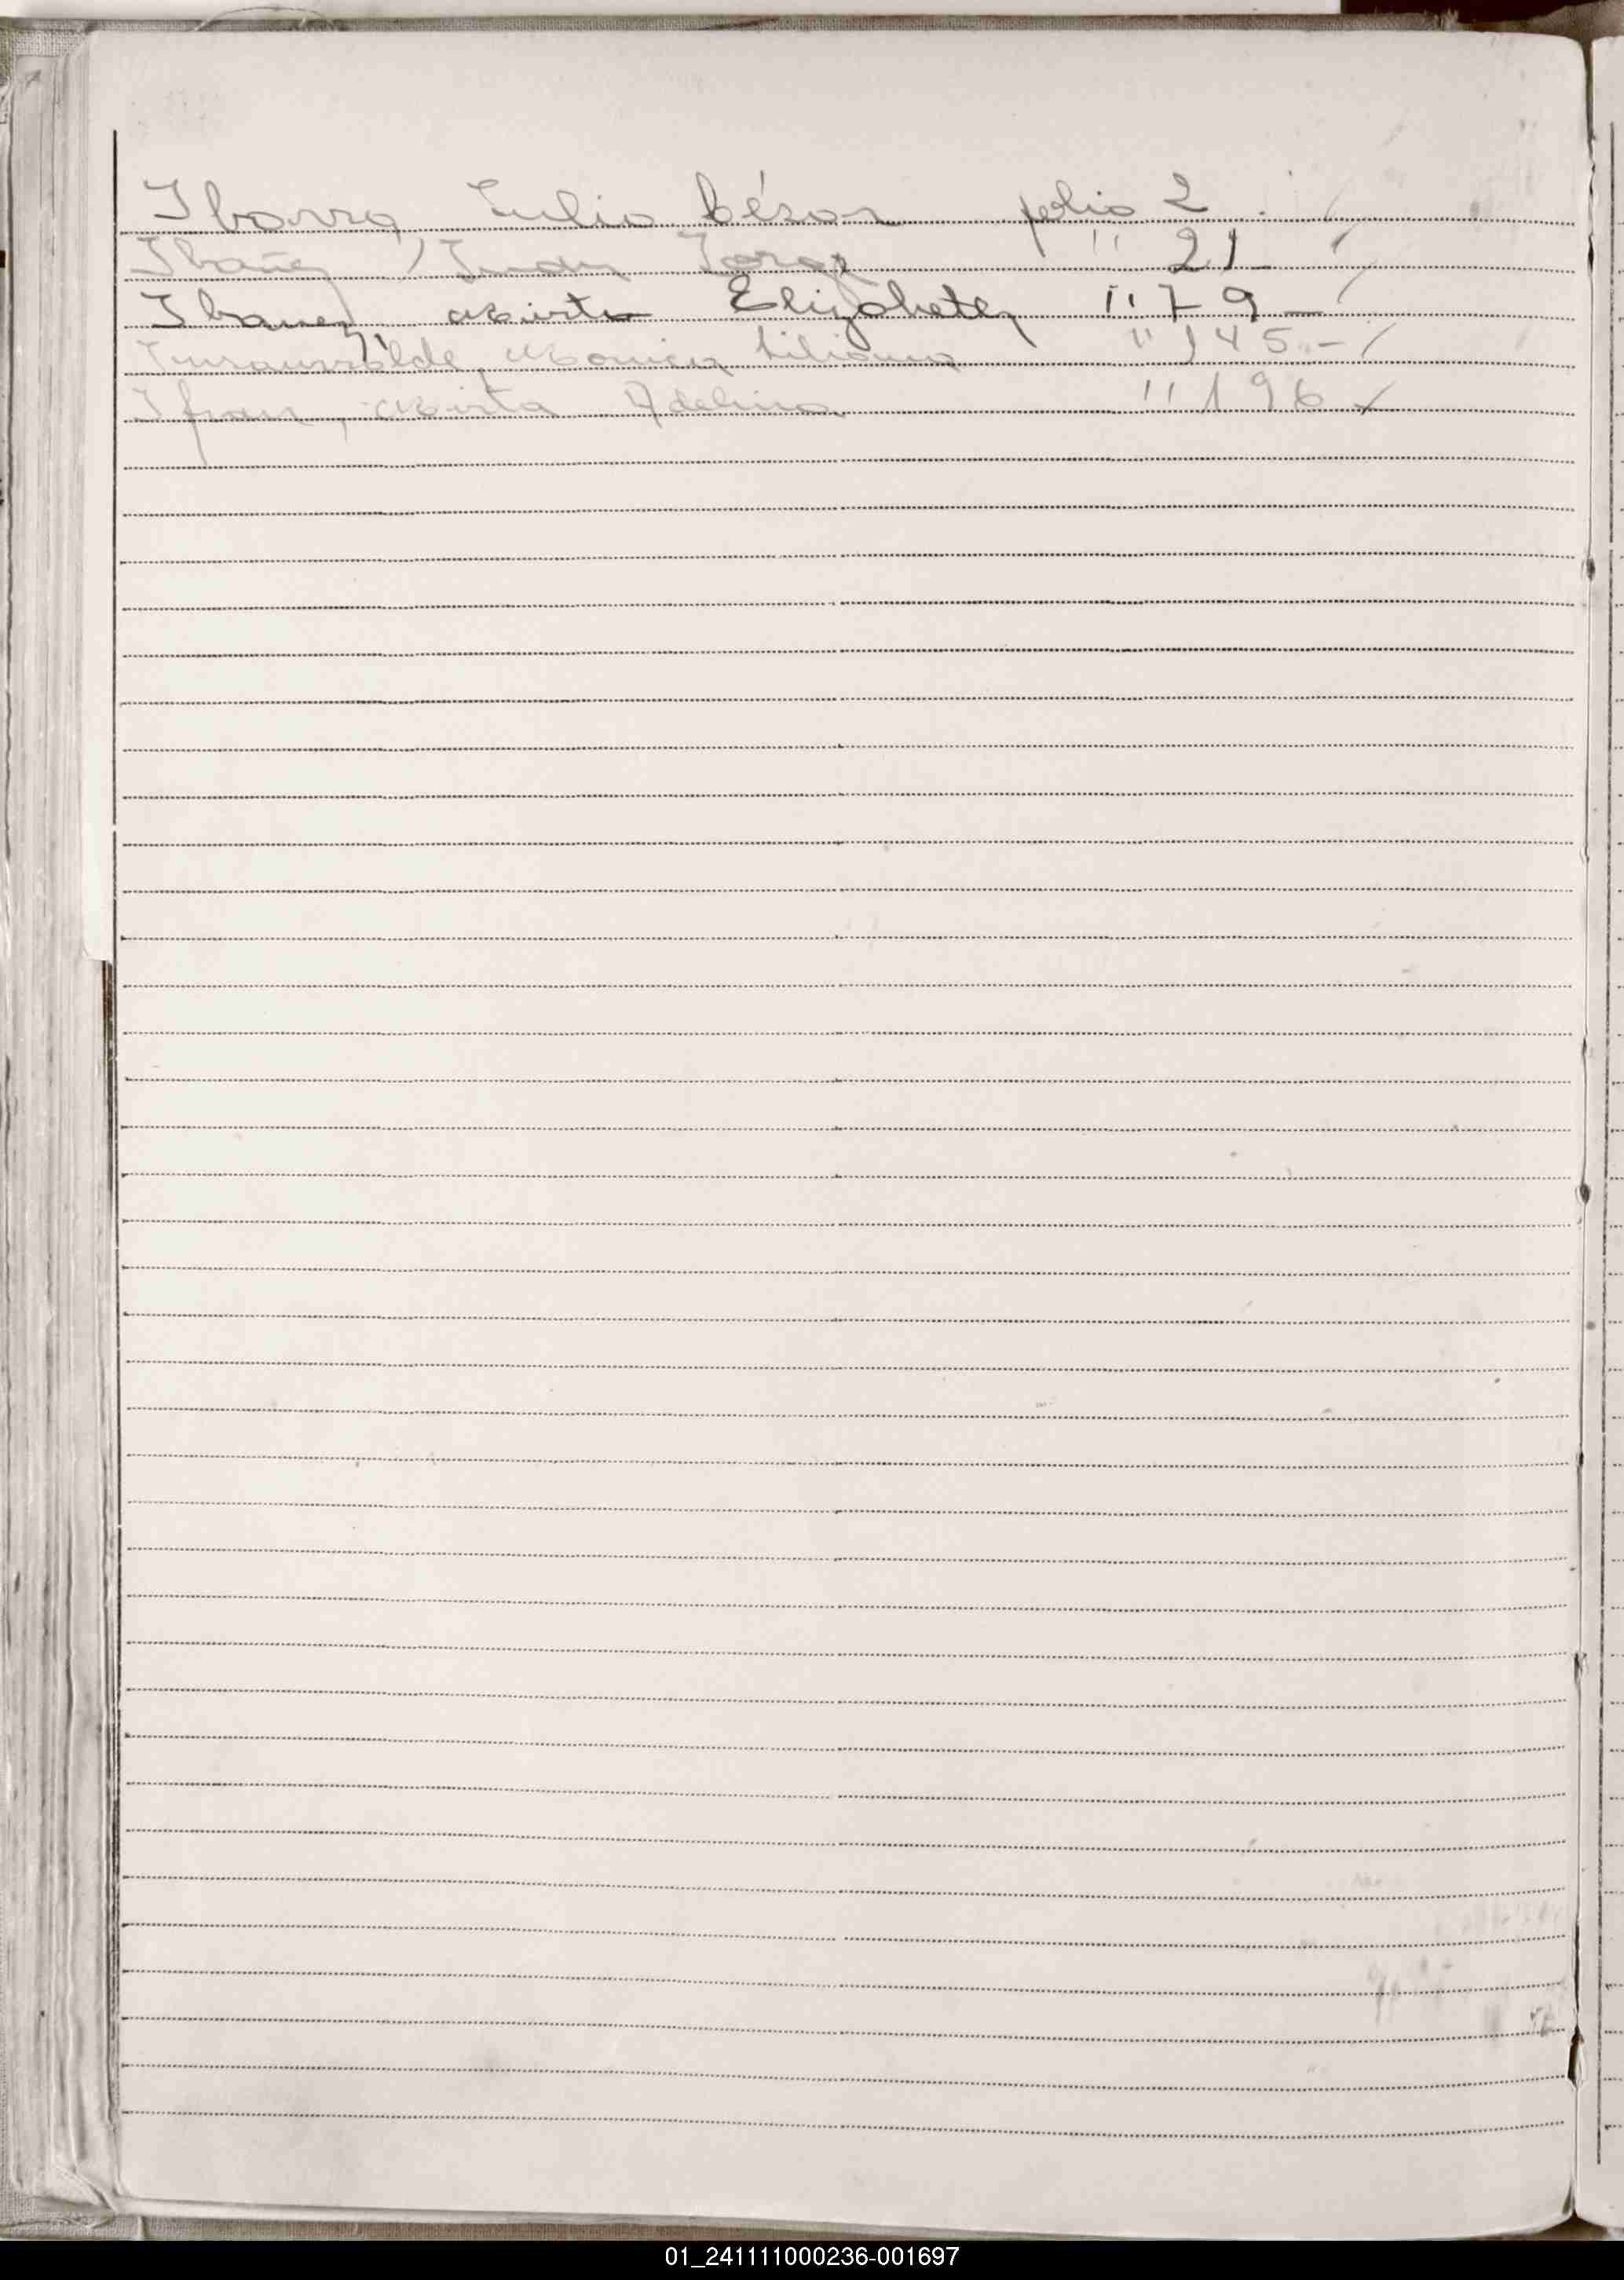 Ibarra Julio César folio 2
Ibañez, Juan Jorge " 21 -
Ibanez, Mirta Elizabeth " 79 -
Insaurralde, Monica Liliana " 145 -
Ifran, Mirta Adelina " 196
01_241111000236-001697